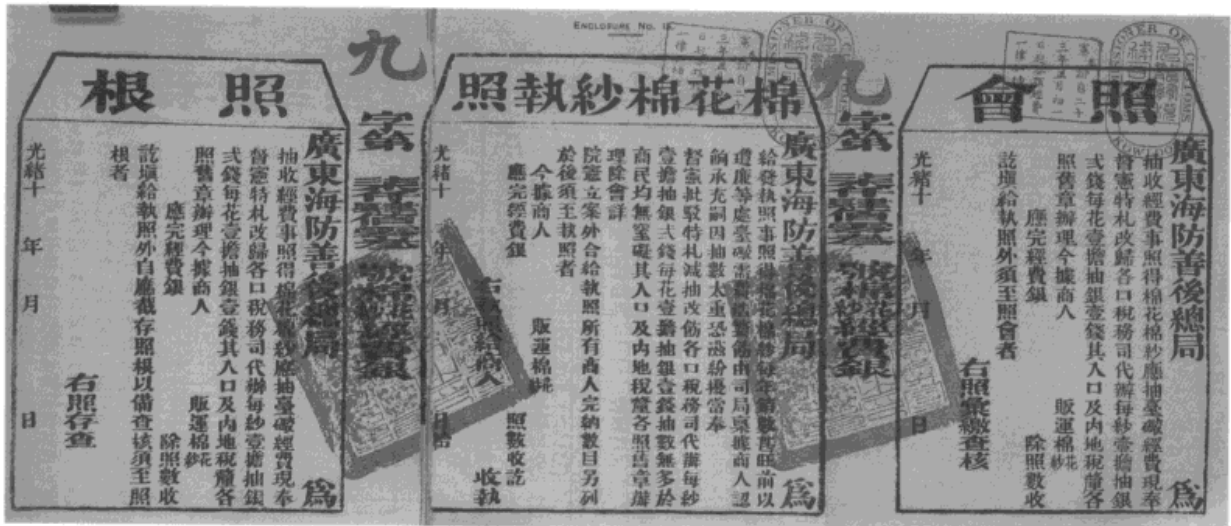 ENCLOSURE No.
照會
廣東海防善後總局 為
抽收經費事照得棉花棉紗應抽臺礮經費現奉
督憲特札改歸各口稅務司代辦每紗壹擔抽銀
弍錢每花壹擔抽銀壹錢其入口及內地稅釐各
照舊章辦理今據商人 販運棉花紗
應完經費銀 除照數收
訖塡給執照外須至照會者
右照彙繳查核
光緒十 年 月 日
九
字第
號棉花紗經費銀
棉花棉紗執照
廣東海防善後總局 為
給發執照事照得棉花棉紗每年銷數甚旺前以
瓊廉等處臺礮需費
餉承充嗣因抽數太重恐滋紛擾當奉
督憲批駁特札減抽改飭各口稅務司代辦每紗
壹擔抽銀弍錢每花壹擔抽銀壹錢抽數無多於
商民均無窒礙其入口及內地稅釐各照舊章辦
理除會詳
院憲立案外合給執照所有商人完納數目另列
於後須至執照者
今據商人 販運棉花紗
應完經費銀 照數收訖
右照給商人 收執
光緒十 年 月 日給
九
字第
號棉花紗經費銀
照根
廣東海防善後總局 為
抽收經費事照得棉花棉紗應抽臺礮經費現奉
督憲特札改歸各口稅務司代辦每紗壹擔抽銀
弍錢每花壹擔抽銀壹錢其入口及內地稅釐各
照舊章辦理今據商人 販運棉花紗
應完經費銀 除照數收
訖塡給執照外自應截存照根以備查核須至照
根者
右照存查
光緒十 年 月 日